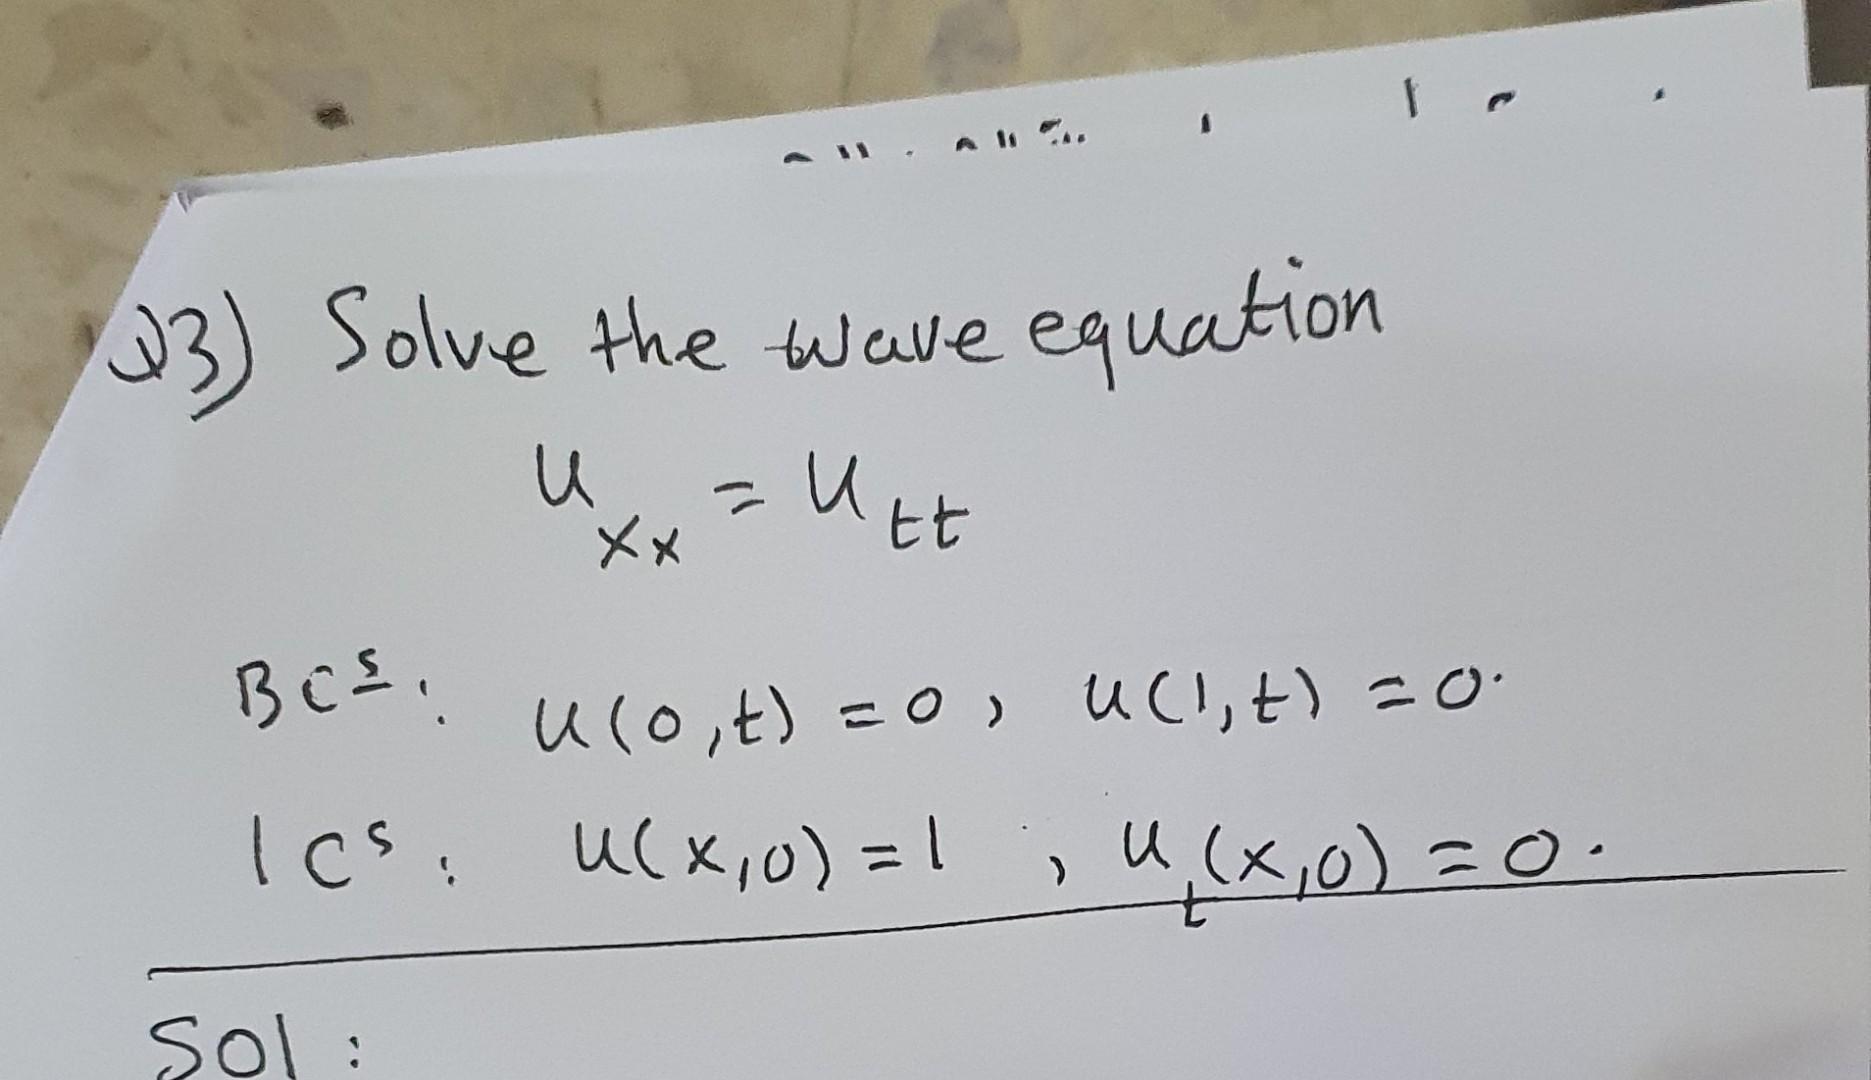 Q3) Solve the wave equation
u_xx = u_tt
BCs: u(0,t) = 0, u(1,t) = 0.
ICs: u(x,0) = 1 ; u_t(x,0) = 0.
Sol: